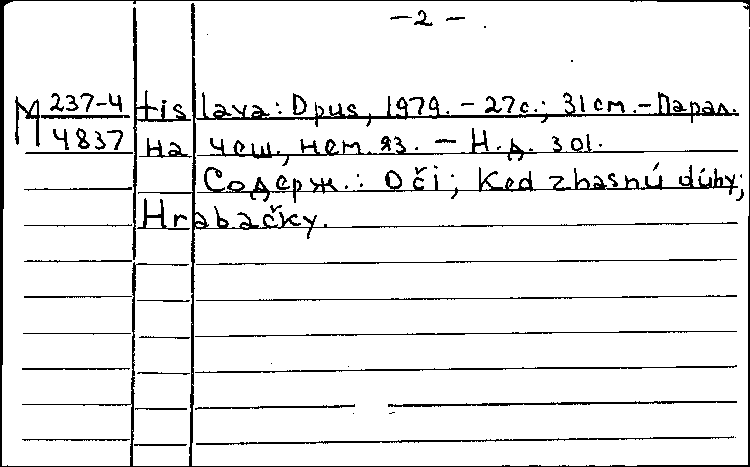 — 2 —
М 237-4 tislava: Opus, 1979. – 27с.; 31см. – Парал.
4837 на чеш., нем. яз. – Н.д. 301.
Содерж.: Oči; Ked zhasnú dúhy;
Hrabačky.